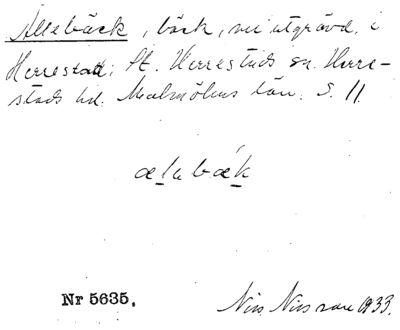 Allebäck, bäck, nu utgrävd, i
Herrestad; St. Herrestads sn. Herre-
stads hd. Malmöhus län. S. 11.
ælabæk
Nr 5635.
Nils Nilsson 1933.